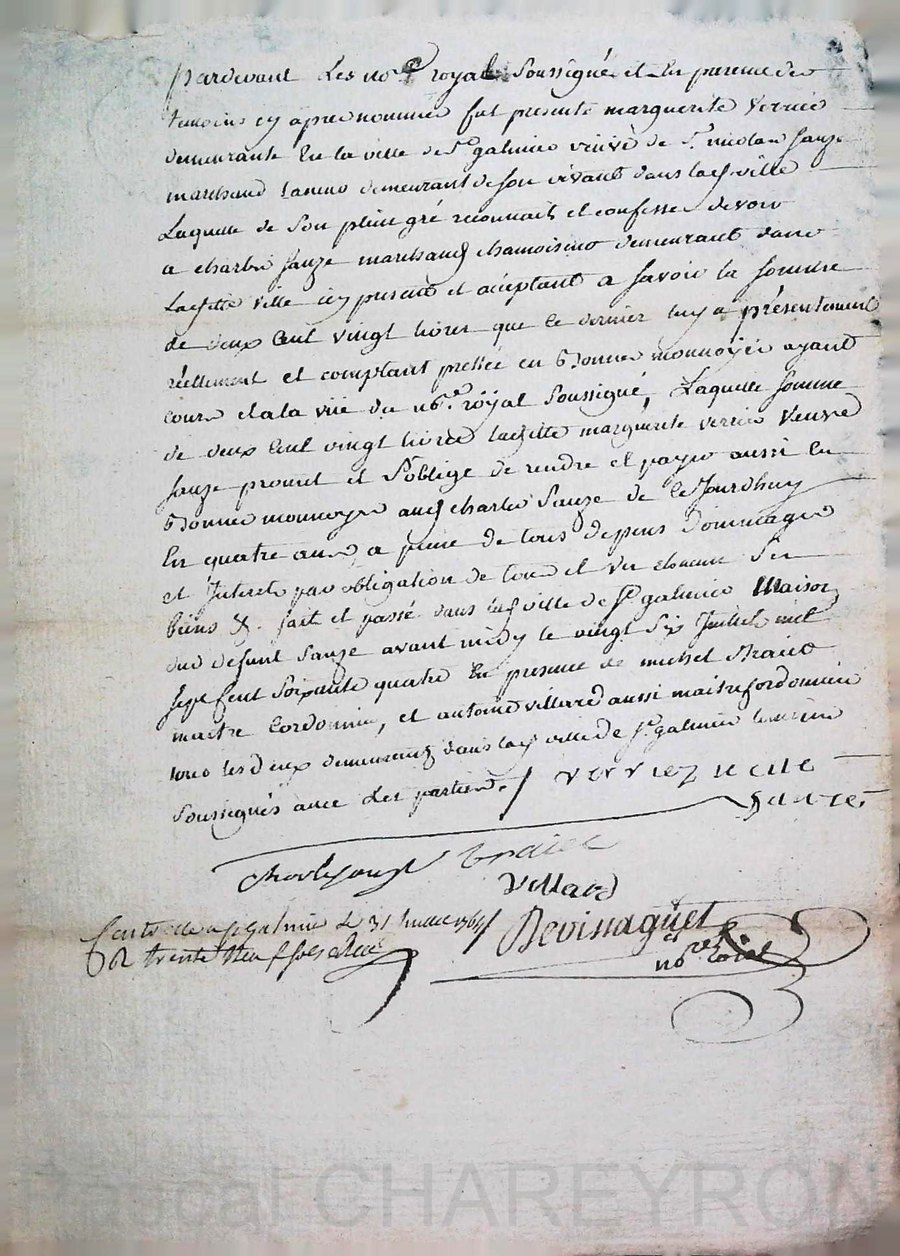 pardevant les no.re royal soussigné et en presence des
temoins cy apres nommés fut presente marguerite verriés
demeurante En la ville de St galmier veuve de Sr nicolas sauze
marchand taneur demeurant de son vivant dans lad ville
Laquelle de Son plein gré reconnait et confesse devoir
a charles sauze marchand chamoiseur demeurant dans
Laditte ville icy present et aceptant a savoir la somme
de deux Cent vingt livres que le dernier luy a présentement
réellement et comptant prettée en Bonnes monnoyes ayant
cours et a la vüe du no.re röyal soussigné, Laquelle somme
de deux Cent vingt livres laditte marguerite verriés veuve
sauze promet et s'oblige de rendre et payer aussi En
Bonnes monnoyes aud charles sauze de Ce Jourdhuy
En quatre ans a peine de tous depens Dommages
et Interets par obligation de tous et Un chacun Ses
biens &. fait et passé dans lad ville de St galmier Maison
dud defunt sauze avant midy le vingt six Juillet mil
sept Cent soixante quatre En presence de michel
maitre Cordonnier, et antoine villard aussi maitre Cordonnier
tous les deux demeurents dans lad ville de St galmier
soussignés avec les parties. / verriez
sauze
Charle sauze
villard
Devinaguet
no.re roial
St Galmier le 31 1764
trente neuf sols
Pascal CHAREYRON